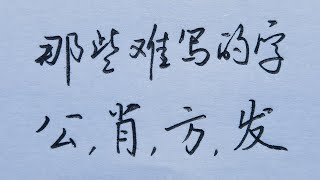 那些难写的字
公,肖,方,发